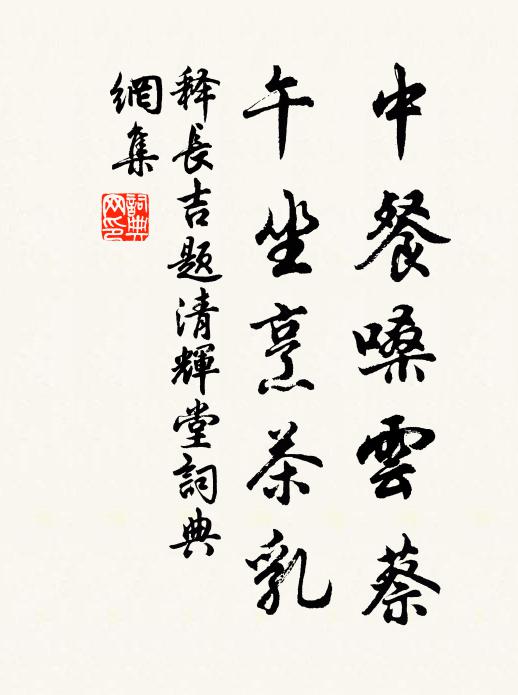 中餐嗓雲蔡
午坐烹茶乳
释長吉題清輝堂詞典
網集
詞典
网印